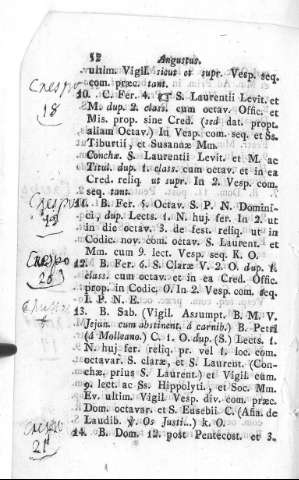 12 Augustus.
ultim. Vigil. sicut et supr. Vesp. seq.
com. præc. tant.
Crespo
18
10. C. Fer. 4. S. Laurentii Levit. et
M. dup. 2. class. cum octav. Offic. et
Mis. prop. sine Cred. (sed dat. propt.
aliam Octav.) In Vesp. com. seq. et Ss.
Tiburtii, et Susannæ Mm.
Conchæ. S. Laurentii Levit. et M. ac
Titul. dup. 1. class. cum octav. et in ea
Cred. reliq. ut supr. In 2. Vesp. com.
seq. tant.
Crespo
11. B. Fer. 5. Octav. S. P. N. Domini-
ci, dup. Lects. 1. N. huj. fer. In 2. ut
in die octav. 3. de fest. reliq. ut in
Codic. nov. com. octav. S. Laurent. et
Mm. cum 9. lect. Vesp. seq. K. O.
Crespo
203
12. B. Fer. 6. S. Claræ V. 2. O. dup. 1.
class. cum octav. et in ea Cred. Offic.
prop. in Codic. O. In 2. Vesp. com. seq.
I. P. N. E.
13. B. Sab. (Vigil. Assumpt. B. M. V.
Jejun. cum abstinent. á carnib.) B. Petri
(á Molleano.) C. 1. O. dup. (S.) Lects. 1.
N. huj. fer. reliq. pr. vel 1. loc. com.
octavar. S. claræ, et S. Laurent. (Con-
chæ, prius S. Laurent.) et Vigil. cum
9. lect. ac Ss. Hippolyti, et Soc. Mm.
Ev. ultim. Vigil. Vesp. div. com. præc.
Dom. octavar. et S. Eusebii C. (Aña. de
Laudib. ℣. Os Justi...) k. O.
Crespo
21
14. B. Dom. 12. post Pentecost. et 3.